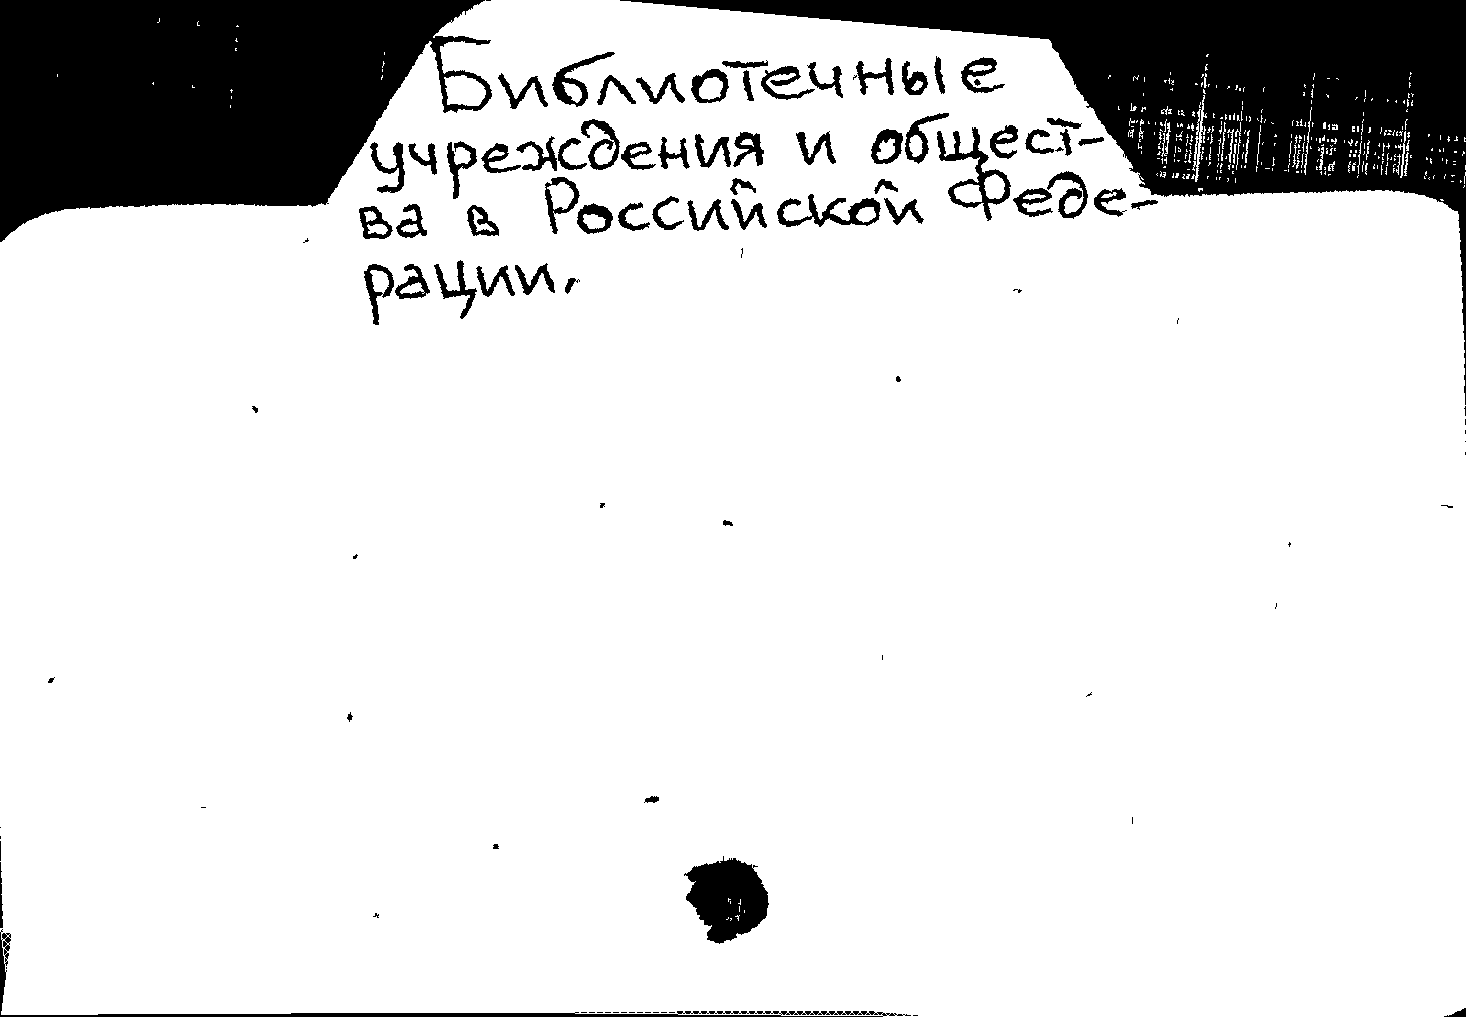 Библиотечные
учреждения и общест-
ва в Российской Феде-
рации.